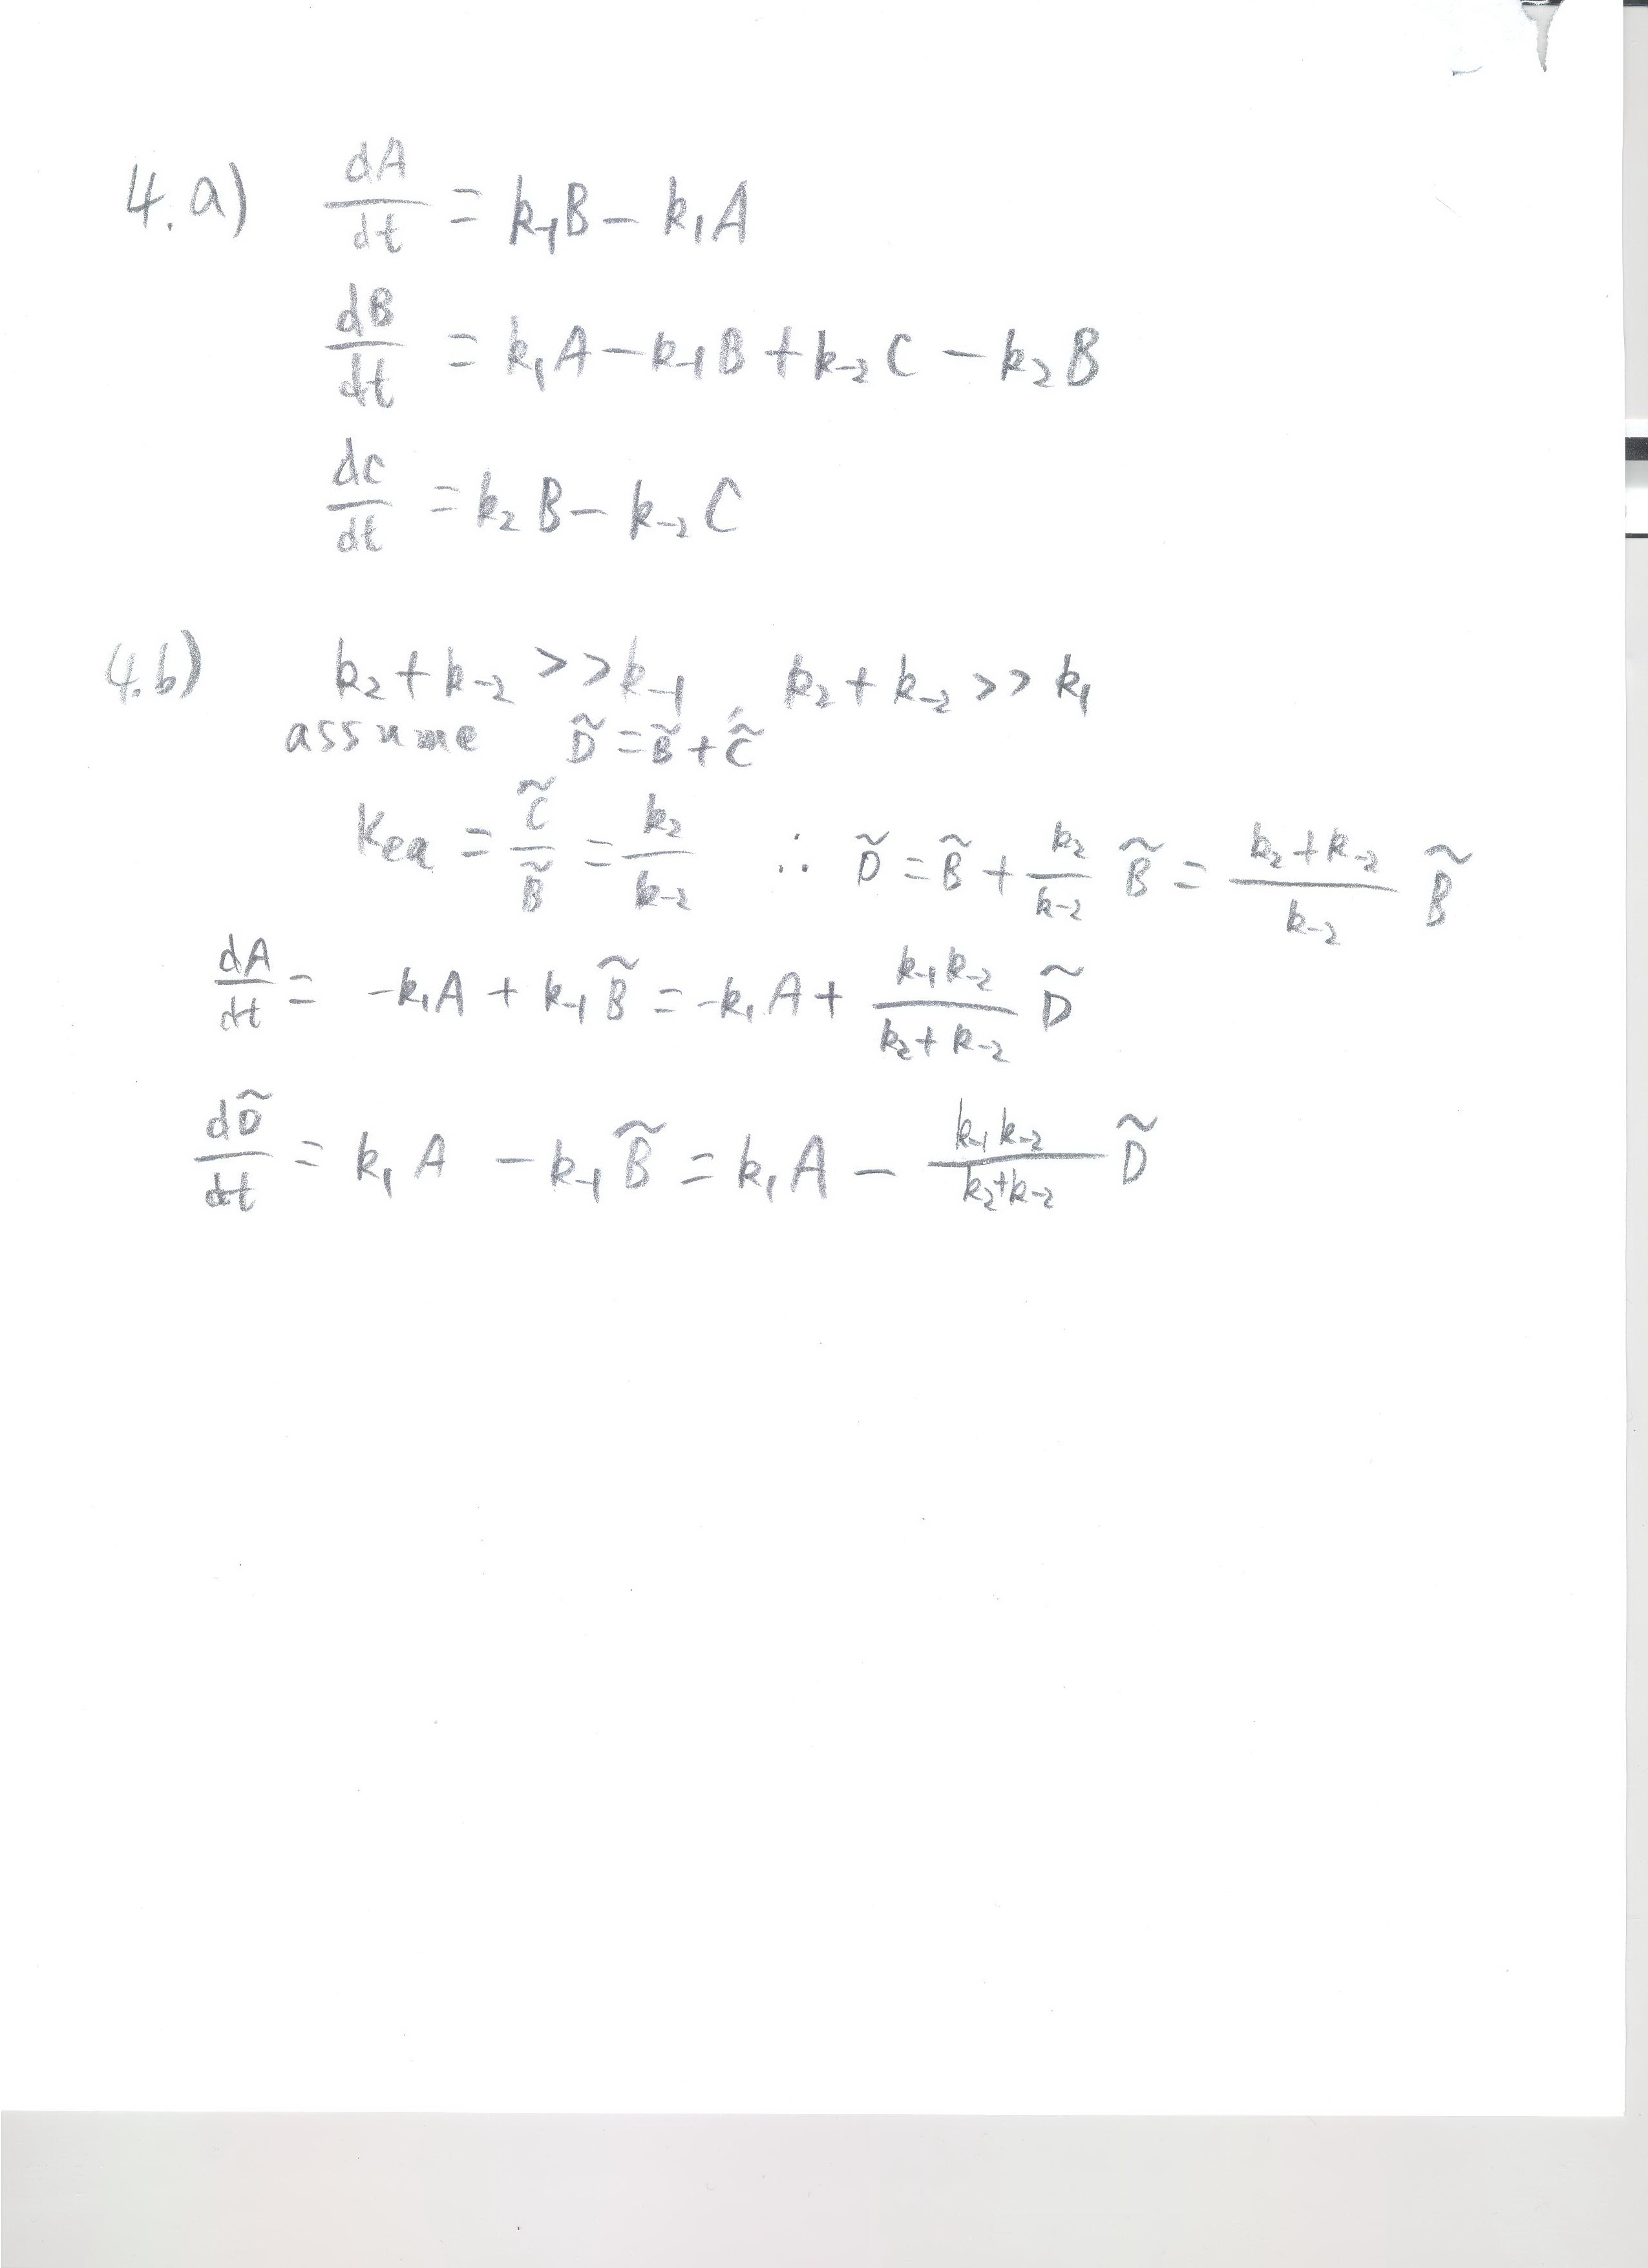 4.a) dA/dt = k₋₁B − k₁A
dB/dt = k₁A − k₋₁B + k₋₂C − k₂B
dC/dt = k₂B − k₋₂C
4.b) k₂ + k₋₂ >> k₋₁, k₂ + k₋₂ >> k₁
assume D̃ = B̃ + C̃
Keq = C̃/B̃ = k₂/k₋₂ ∴ D̃ = B̃ + k₂/k₋₂ B̃ = (k₂ + k₋₂)/k₋₂ B̃
dA/dt = −k₁A + k₋₁B̃ = −k₁A + k₋₁k₋₂/(k₂ + k₋₂) D̃
dD̃/dt = k₁A − k₋₁B̃ = k₁A − k₋₁k₋₂/(k₂+k₋₂) D̃